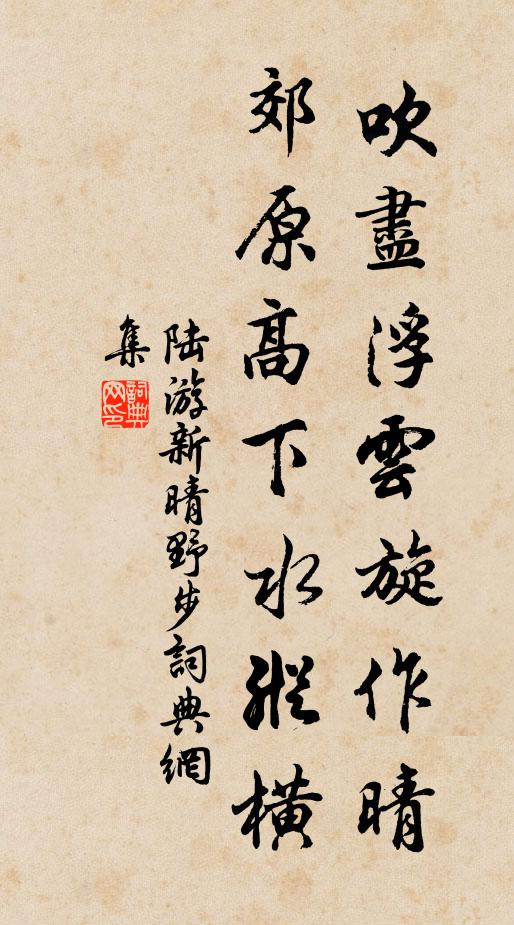 吹盡浮雲旋作晴
郊原高下水縱橫
陆游新晴野步詞典網
集
詞典网印